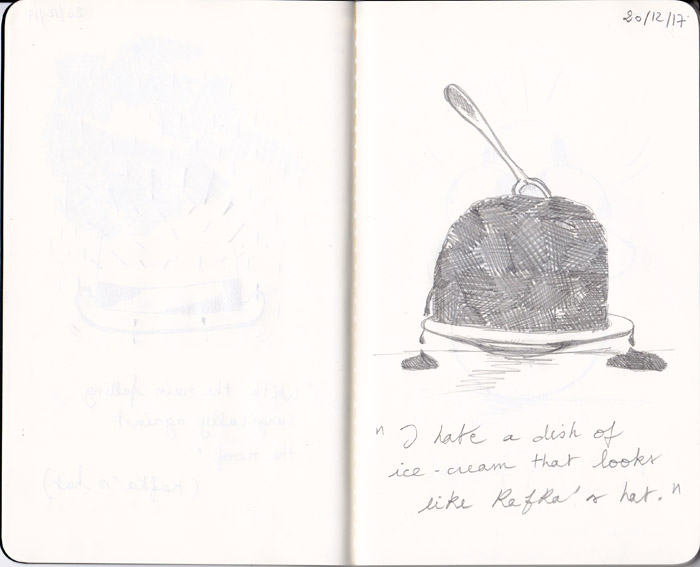 20/12/17
" I hate a dish of
ice-cream that looks
like Kafka's hat. "